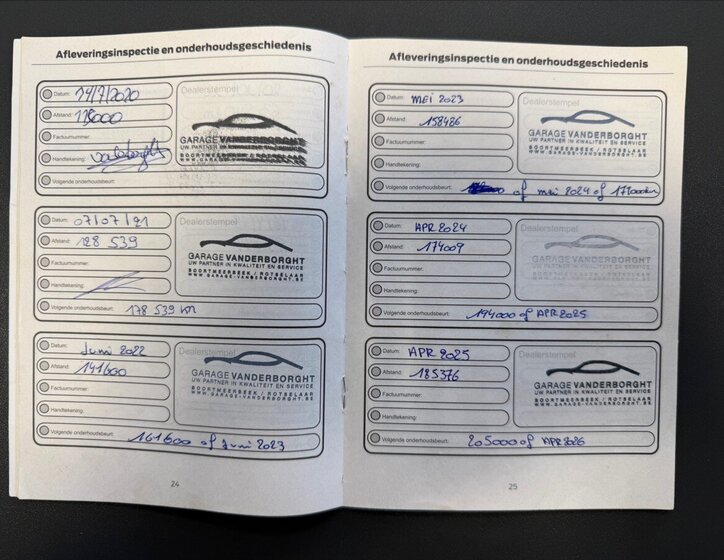 Afleveringsinspectie en onderhoudsgeschiedenis
Datum: 24/7/2020
Dealerstempel
Afstand: 118000
Factuurnummer:
GARAGE VANDERBORGHT
UW PARTNER IN KWALITEIT EN SERVICE
BOORTMEERBEEK / ROTSELAAR
Handtekening:
Volgende onderhoudsbeurt:
Datum: 07/07/21
Dealerstempel
Afstand: 128 539
Factuurnummer:
GARAGE VANDERBORGHT
UW PARTNER IN KWALITEIT EN SERVICE
BOORTMEERBEEK / ROTSELAAR
WWW.GARAGE-VANDERBORGHT.BE
Handtekening:
Volgende onderhoudsbeurt: 178 539 km
Datum: Juni 2022
Dealerstempel
Afstand: 141600
Factuurnummer:
GARAGE VANDERBORGHT
UW PARTNER IN KWALITEIT EN SERVICE
BOORTMEERBEEK / ROTSELAAR
WWW.GARAGE-VANDERBORGHT.BE
Handtekening:
Volgende onderhoudsbeurt: 161600 of Juni 2023
24
Afleveringsinspectie en onderhoudsgeschiedenis
Datum: MEI 2023
Dealerstempel
Afstand: 158486
Factuurnummer:
GARAGE VANDERBORGHT
UW PARTNER IN KWALITEIT EN SERVICE
BOORTMEERBEEK / ROTSELAAR
WWW.GARAGE-VANDERBORGHT.BE
Handtekening:
Volgende onderhoudsbeurt: of mei 2024 of
Datum: APR 2024
Dealerstempel
Afstand: 174009
Factuurnummer:
GARAGE VANDERBORGHT
UW PARTNER IN KWALITEIT EN SERVICE
BOORTMEERBEEK / ROTSELAAR
WWW.GARAGE-VANDERBORGHT.BE
Handtekening:
Volgende onderhoudsbeurt: 194000 of APR 2025
Datum: APR 2025
Dealerstempel
Afstand: 185376
Factuurnummer:
GARAGE VANDERBORGHT
UW PARTNER IN KWALITEIT EN SERVICE
BOORTMEERBEEK / ROTSELAAR
WWW.GARAGE-VANDERBORGHT.BE
Handtekening:
Volgende onderhoudsbeurt: 205000 of APR 2026
25